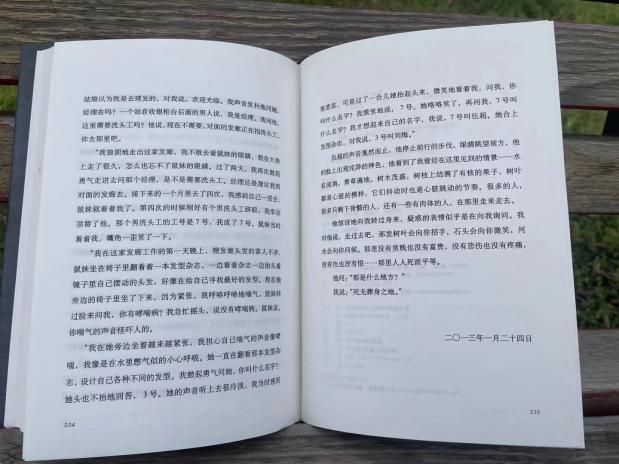 姑娘以为我是去理发的，对我说，欢迎光临。我声音发抖地问她，
经理在吗？一个站在收银柜台后面的男人说，我是经理。我问他，
这里需要洗头工吗？他说，现在不需要，对面的发廊正在招洗头工，
你去那里吧。
“我狼狈地走出这家发廊，我不敢去看鼠妹的眼睛，我在大街
上走了很久，怎么也忘不了鼠妹的眼睛。过了两天，我再次鼓起
勇气走进去问那个经理，是不是需要洗头工。经理还是建议我到
对面的发廊去。接下来的一个月里去了四次，我感到自己一过去，
鼠妹就看着我了。第四次的时候刚好有个男洗头工辞职，我幸运
顶替了他。那个男洗头工的工号是7号，我成了7号。鼠妹当时
看着我，嘴角一歪笑了一下。
“我在这家发廊工作的第一天晚上，理发做头发的客人不多，
鼠妹坐在椅子里翻看着一本发型杂志，一边看着杂志一边抬头看
镜子里自己摆动的头发，好像在给自己寻找最好的发型。我在她
旁边的椅子里坐了下来，因为紧张，我呼哧呼哧地喘气，鼠妹转
过脸来问我，你有哮喘病？我急忙摇头，说没有哮喘病。鼠妹说，
你喘气的声音怪吓人的。
“我在她旁边坐着越来越紧张，我担心自己喘气的声音像哮
喘，我像是在水里憋气似的小心呼吸。她一直在翻看那本发型杂
志，设计自己各种不同的发型。我鼓起勇气问她，你叫什么名字？
她头也不抬地回答，3号。她的声音听上去很冷淡，我当时感到
224
很悲哀。可是过了一会儿她抬起头来，微笑地看着我，问我，你
叫什么名字？我慌张地说，7号。她咯咯笑了，再问我，7号叫
什么名字？我才想起来自己的名字，我说，7号叫伍超。她合上
发型杂志，对我说，3号叫刘梅。”
伍超的声音戛然而止，他停止前行的步伐，眼睛眺望前方，他
的脸上出现诧异的神色，他看到了我曾经在这里见到的情景——水
在流淌，青草遍地，树木茂盛，树枝上结满了有核的果子，树叶
都是心脏的模样，它们抖动时也是心脏跳动的节奏。很多的人，
很多只剩下骨骼的人，还有一些有肉体的人，在那里走来走去。
他惊讶地向我转过身来，疑惑的表情似乎是在向我询问。我
对他说，走过去吧，那里树叶会向你招手，石头会向你微笑，河
水会向你问候。那里没有贫贱也没有富贵，没有悲伤也没有疼痛，
没有仇也没有恨……那里人人死而平等。
他问：“那是什么地方？”
我说：“死无葬身之地。”
二〇一三年一月二十四日
225